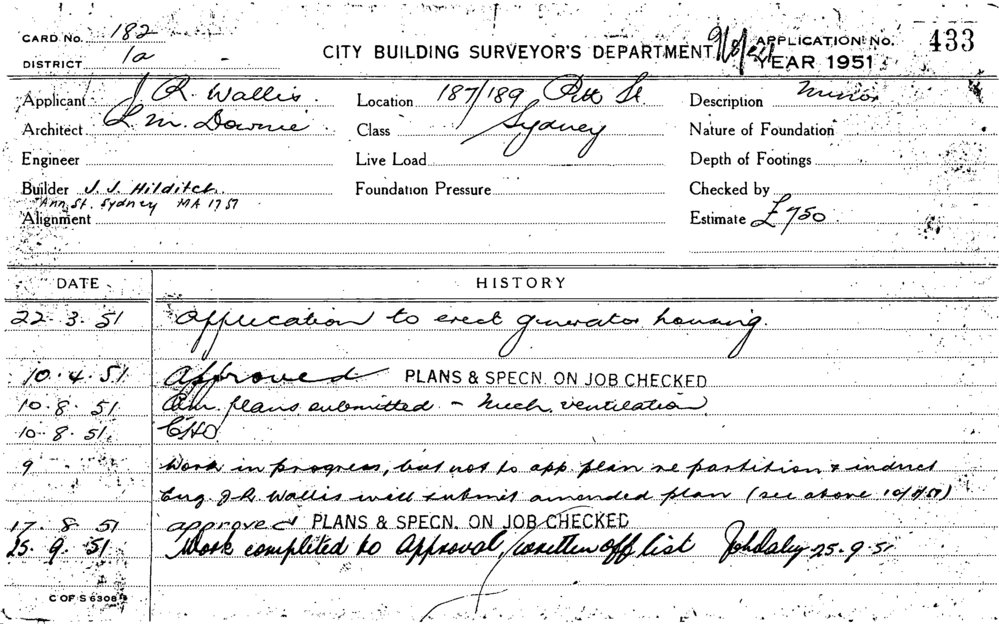 CARD No. 182
DISTRICT 1a
CITY BUILDING SURVEYOR'S DEPARTMENT
APPLICATION No. 433
YEAR 1951
Applicant J R Wallis
Location 187/189 Pitt St
Description Minor
Architect L M. Downie
Class Sydney
Nature of Foundation
Engineer
Live Load
Depth of Footings
Builder J. J. Hilditch
Foundation Pressure
Checked by
Ann St. Sydney MA 1757
Alignment
Estimate £750
DATE HISTORY
22.3.51 Application to erect generator housing.
10.4.51 Approved PLANS & SPECN. ON JOB CHECKED
10.8.51 Am. plans submitted - Mech. ventilation
10.8.51 CHO
9 Work in progress, but not to app. plan re partition & induct
Eng. J.R. Wallis will submit amended plan (see above 10/8/51)
17.8.51 approved PLANS & SPECN. ON JOB CHECKED
25.9.51 Work completed to Approval, written off list JohDaley 25.9.51
C OF S 6308